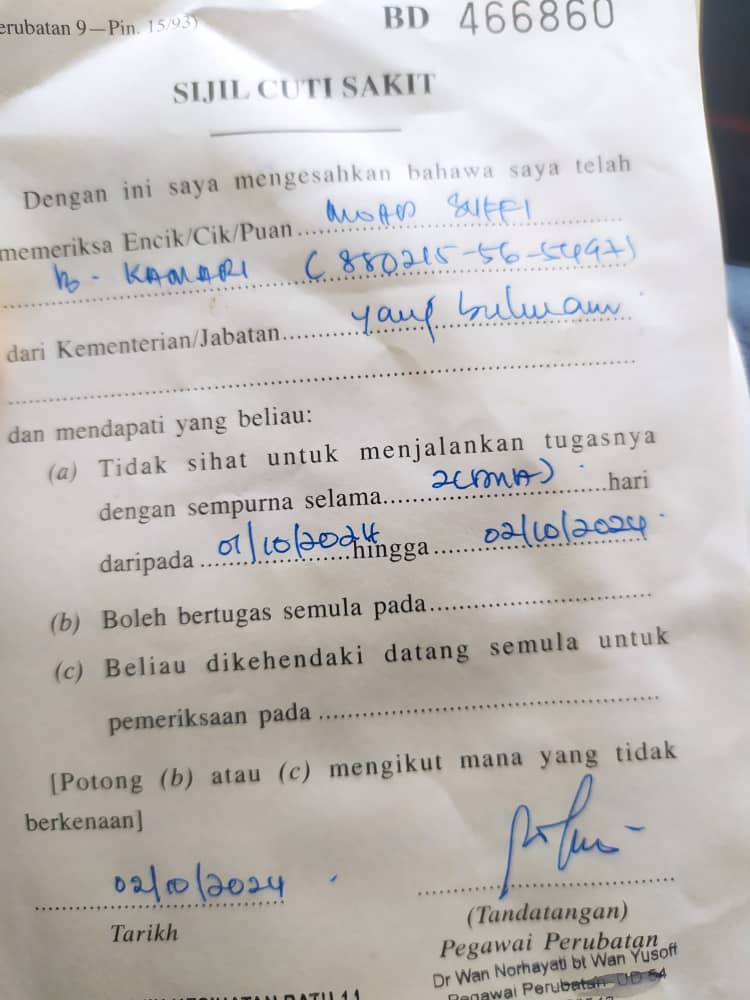 erubatan 9—Pin. 15/93)
BD 466860
SIJIL CUTI SAKIT
Dengan ini saya mengesahkan bahawa saya telah
memeriksa Encik/Cik/Puan MOHD SUFFI
B. KAMARI (880215-56-5497)
dari Kementerian/Jabatan yang bulunam
dan mendapati yang beliau:
(a) Tidak sihat untuk menjalankan tugasnya
dengan sempurna selama 2(DUA) hari
daripada 01/10/2024 hingga 02/10/2024
(b) Boleh bertugas semula pada
(c) Beliau dikehendaki datang semula untuk
pemeriksaan pada
[Potong (b) atau (c) mengikut mana yang tidak
berkenaan]
02/10/2024
Tarikh
(Tandatangan)
Pegawai Perubatan
Dr Wan Norhayati bt Wan Yusoff
Pegawai Perubatan UD 54